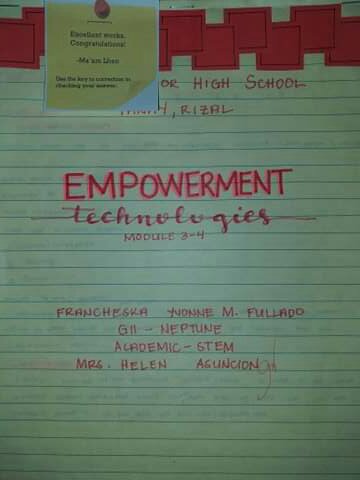 Excellent works.
Congratulations!
-Ma'am Lhen
Use the key to correction in
checking your answer.
OR HIGH SCHOOL
TANAY, RIZAL
EMPOWERMENT
technologies
MODULE 3-4
FRANCHESKA YVONNE M. FULLADO
G11 - NEPTUNE
ACADEMIC - STEM
MRS. HELEN ASUNCION